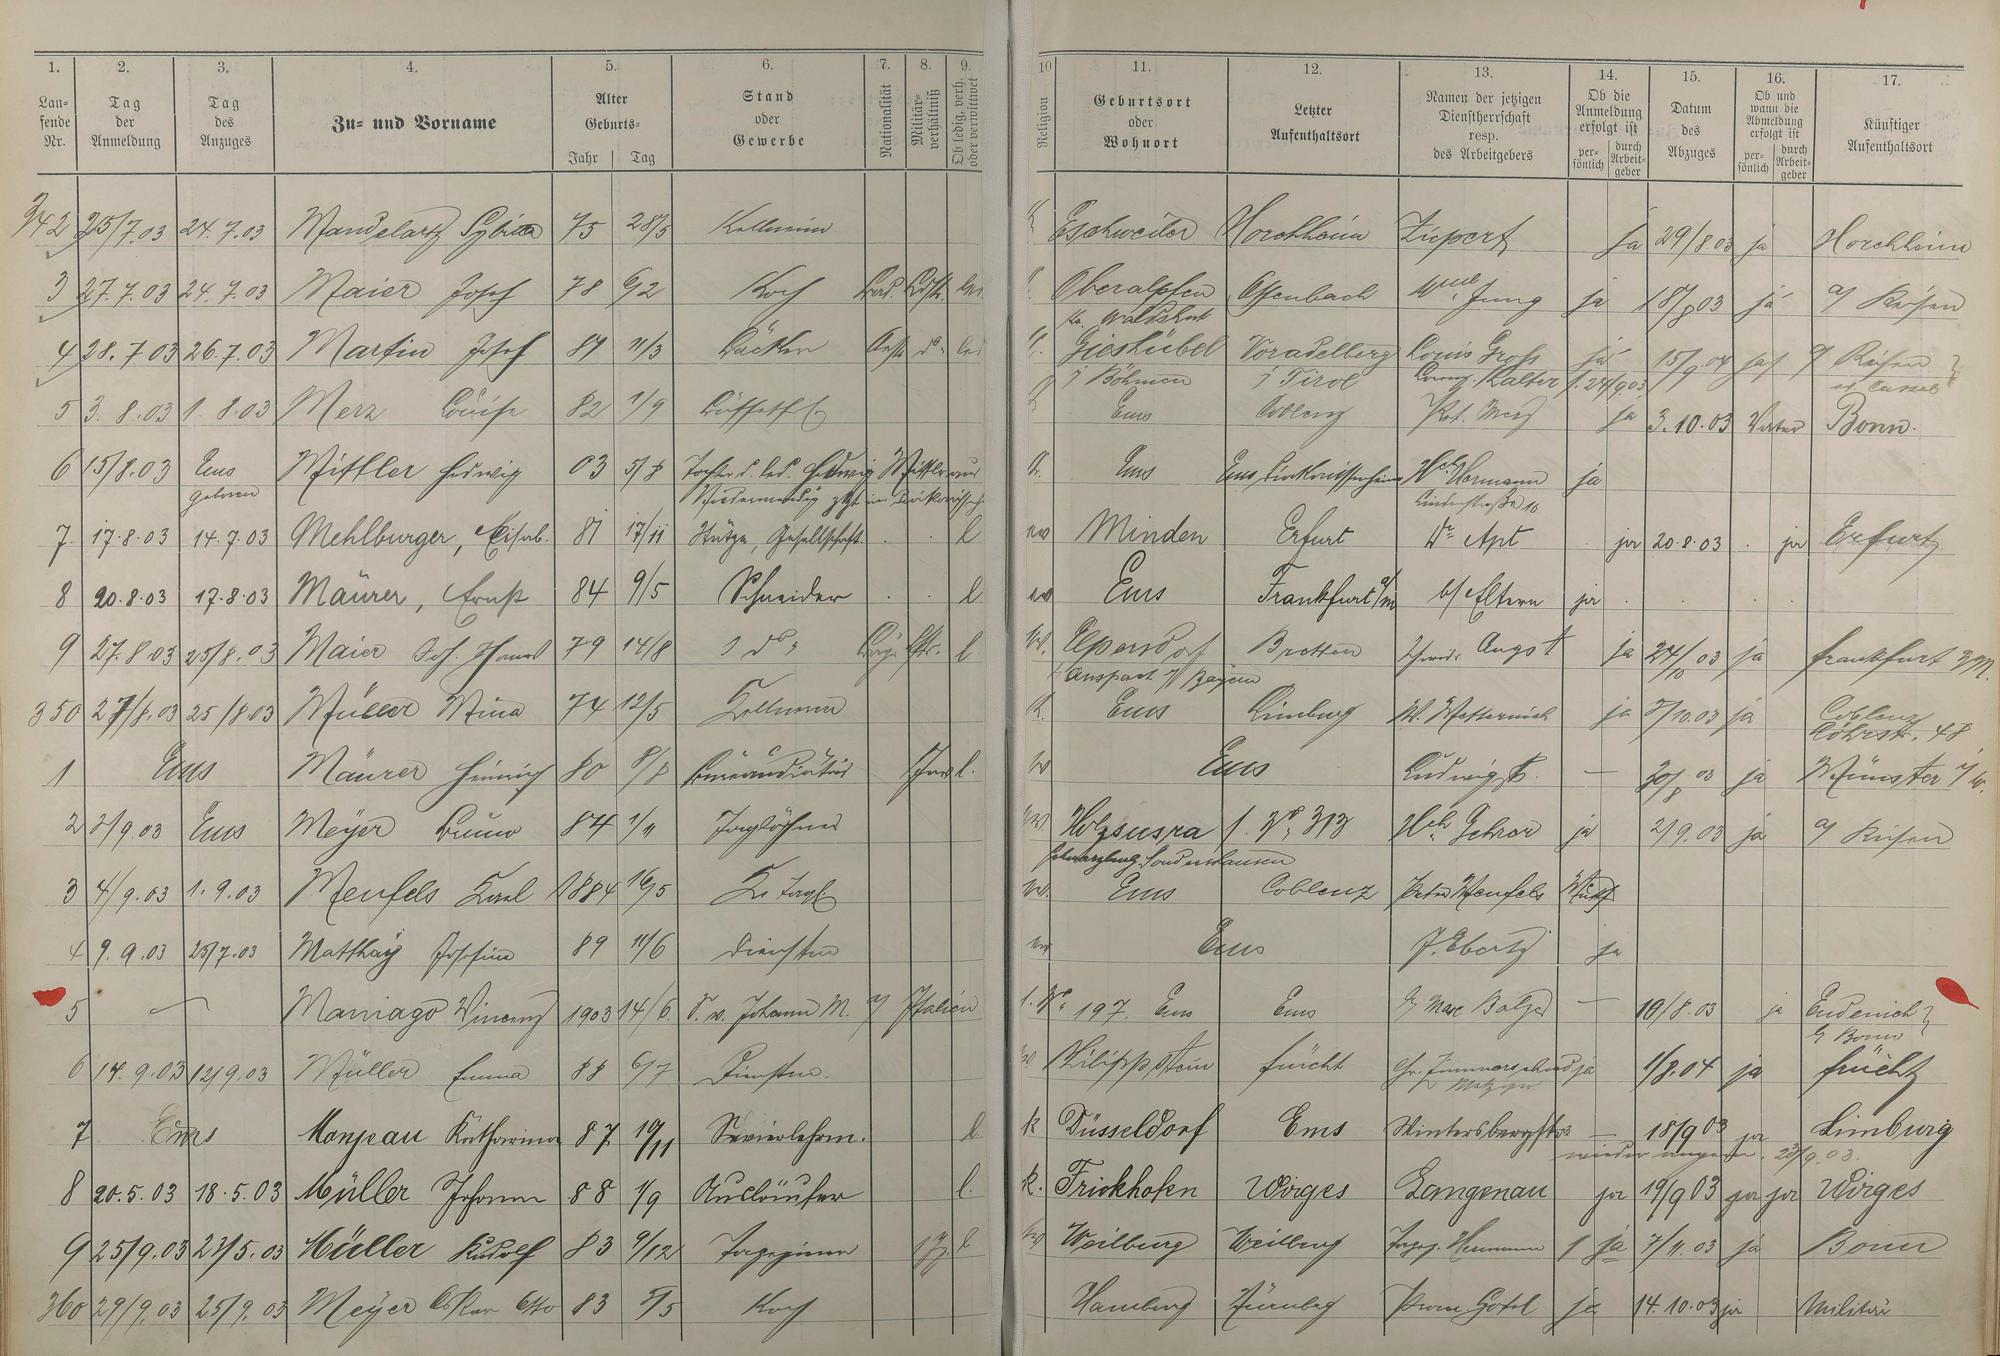 1. 2. 3. 4. 5. 6. 7. 8. 9. 10 11. 12. 13. 14. 15. 16. 17.
Laufende Nr. Tag der Anmeldung Tag des Anzuges Zu- und Vorname Alter Geburts- Jahr Tag Stand oder Gewerbe Nationalität Militärverhältniß Ob ledig, verh. oder verwittwet Religion Geburtsort oder Wohnort Letzter Aufenthaltsort Namen der jetzigen Dienstherrschaft resp. des Arbeitgebers Ob die Anmeldung erfolgt ist persönlich durch Arbeitgeber Datum des Abzuges Ob und wann die Abmeldung erfolgt ist persönlich durch Arbeitgeber Künftiger Aufenthaltsort
342 25/7.03 24.7.03 Mandelartz 75 28/5 Kellnerin K Eschweiler Horchheim Ziepert ja 29/8.03 ja Horchheim
3 27.7.03 24.7.03 Maier Josef 78 6/2 Koch Bad. led. Oberalpfen Offenbach Jung ja 18/8 03 ja a/ Reisen
Waldshut
4 28.7.03 26.7.03 Martin Josef 84 11/3 Bäcker do led Gieshübel Voradelberg Louis Gross ja 15/9.04 ja a/ Reisen
i Böhmen i Tirol Kalter f. 24/9 03 Cassel
5 3.8.03 1.8.03 Merz Louise 82 1/9 Ems Coblenz Merz ja 3.10.03 Vater Bonn.
6 15/8.03 Ems Mittler Hedwig 03 5/8 Tochter d. led. Hedwig Mittler aus K. Ems Ems Hch Hermann ja
geboren Niedermendig Lindenstraße 18
7. 17.8.03 14.7.03 Mehlburger, Elisab. 81 17/11 Stütze, Gesellschaft. l ev Minden Erfurt Dr Apt ja 20.8.03 ja Erfurt
8 20.8.03 17.8.03 Mäurer, Ernst 84 9/5 Schneider l ev Ems Frankfurt a/m b/ Eltern ja
9 27.8.03 25/8.03 Maier Joh. 79 14/8 " do " l. ev. Elpersdorf Bretten Angst ja 24/10 03 ja Frankfurt a/M.
b/ Anspach i/ Bayern
350 27/8.03 25/8.03 Müller Mina 74 12/5 Kellnerin K. Ems Limburg W. Metternich ja 10.03 ja Coblenz
Löhrstr. 48
1 Ems Mäurer Heinrich 80 8/8 l. ev Ems Ludwigstr. — 30/8 03 ja Münster i/w.
2 2/9.03 Ems Meyer Bruno 84 1/11 Taglöhner ev. Holzsusra f. No 313 Hch Gehron ja 2/9.03 ja a/ Reisen
Schwarzburg Sondershausen
3 4/9.03 1.9.03 Menfels Karl 1884 16/5 ev. Ems Coblenz Peter Menfels
4 9.9.03 25/7.03 Matthäy Josefine 89 11/6 Dienstm ev Ems J. Ebertz ja
5 — Maniago Vincenz 1903 14/6. S. v. Johann M. a/ Italien f. No 197. Ems Ems b/ Marc Balzer — 16/8.03 ja Endenich
b/ Bonn
6 14.9.03 12/9.03 Müller Emma 88 6/7 Dienstm. ev Philippstein Frücht Chr. Zimmerschied ja 1/8.04 ja Frücht
Metzger
7 Ems Monjeau Katharina 87 19/11 Servierlehrm. l k Düsseldorf Ems Wintersbergstr — 18/9 03 ja Limburg
wieder angem. 23/9.03.
8 20.5.03 18.5.03 Müller Johann 88 1/9 Ausläufer l. k. Frickhofen Wirges Langenau ja 19/9 03 ja ja Wirges
9 25/9.03 23/5.03 Müller Rudolf 83 9/12 l ev Weilburg Weilburg ja 7/11.03 ja Bonn
360 29/9.03 25/9.03 Meyer Oskar Otto 83 5/5 Koch Hamburg Nürnberg ja 14.10.03 ja Militär